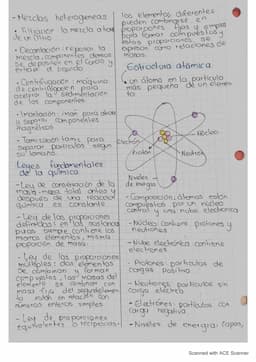 • Mezclas heterogéneas
• Filtración: la mezcla a través
de un filtro
• Decantación: reposar la
mezcla, componentes densos
se depositan en el fondo y
extraer el líquido
• Centrifugación: máquina
de centrifugación para
acelerar la sedimentación
de los componentes
• Imantación: imán para atraer
y separar componentes
magnéticos
• Tamización: tamiz para
separar partículas según
su tamaño
Leyes fundamentales
de la química
- Ley de conservación de la
masa: masa total antes y
después de una reacción
química es constante
- Ley de las proporciones
definidas: en las sustancias
puras siempre contiene los
mismos elementos, misma
proporción de masa.
- Ley de las proporciones
múltiples: dos elementos
se combinan y forman
compuestos, las masas del
elemento se combinan con
masa fija del segundo elemento
están en relación con
números enteros simples
- Ley de proporciones
equivalentes o recíprocas:
los elementos diferentes
pueden combinarse en
proporciones fijas y simples
para formar compuestos y
estas proporciones se
expresan como relaciones de
masas.
Estructura atómica
• un átomo es la partícula
más pequeña de un elemen-
to.
Núcleo
Electrón
Protón
Neutrón
Niveles
de energía
• Composición: átomos están
compuestos por un núcleo
central y una nube electrónica
• Núcleo contiene protones y
neutrones
• Nube electrónica contiene
electrones
• Protones: partículas de
cargas positiva
• Neutrones: partículas sin
carga eléctrica
• Electrones: partículas con
carga negativa
• Niveles de energía: capas,
Scanned with ACE Scanner